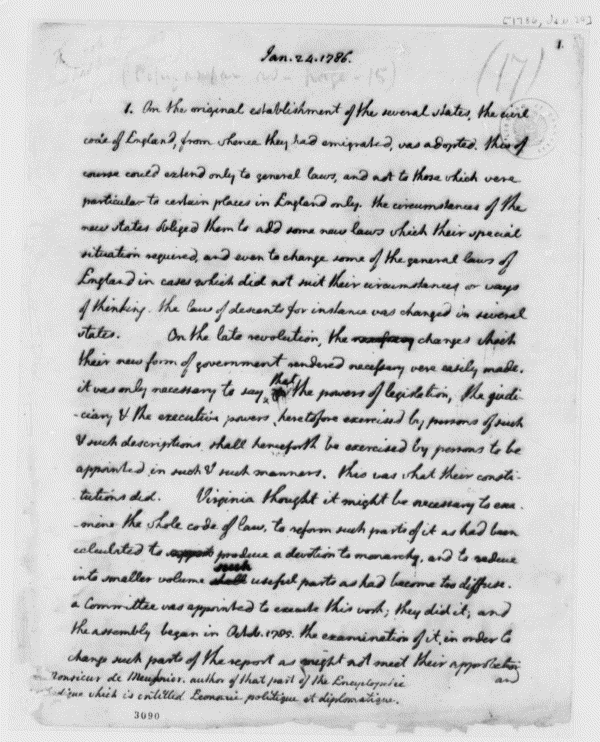 [1786, Jan 24]
1
Jan. 24. 1786.
(17)
1. On the original establishment of the several states, the civil
code of England, from whence they had emigrated, was adopted. this of
course could extend only to general laws, and not to those which were
particular to certain places in England only. the circumstances of the
new states obliged them to add some new laws which their special
situation required, and even to change some of the general laws of
England in cases which did not suit their circumstances or ways
of thinking. the law of descents for instance was changed in several
states. On the late revolution, the necessary changes which
their new form of government rendered necessary were easily made.
it was only necessary to say that the powers of legislation, the judi-
-ciary & the executive powers, heretofore exercised by persons of such
& such descriptions shall henceforth be exercised by persons to be
appointed in such & such manners. this was what their consti-
tutions did. Virginia thought it might be necessary to exa-
-mine the whole code of law, to reform such parts of it as had been
calculated to produce a devotion to monarchy, and to reduce
into smaller volume such useful parts as had become too diffuse.
a Committee was appointed to execute this work; they did it; and
the assembly began in Octob. 1785. the examination of it, in order to
change such parts of the report as might not meet their approbation
and
Monsieur de Meusnier. author of that part of the Encyclopedie
dique which is entitled Economie politique et diplomatique.
3090